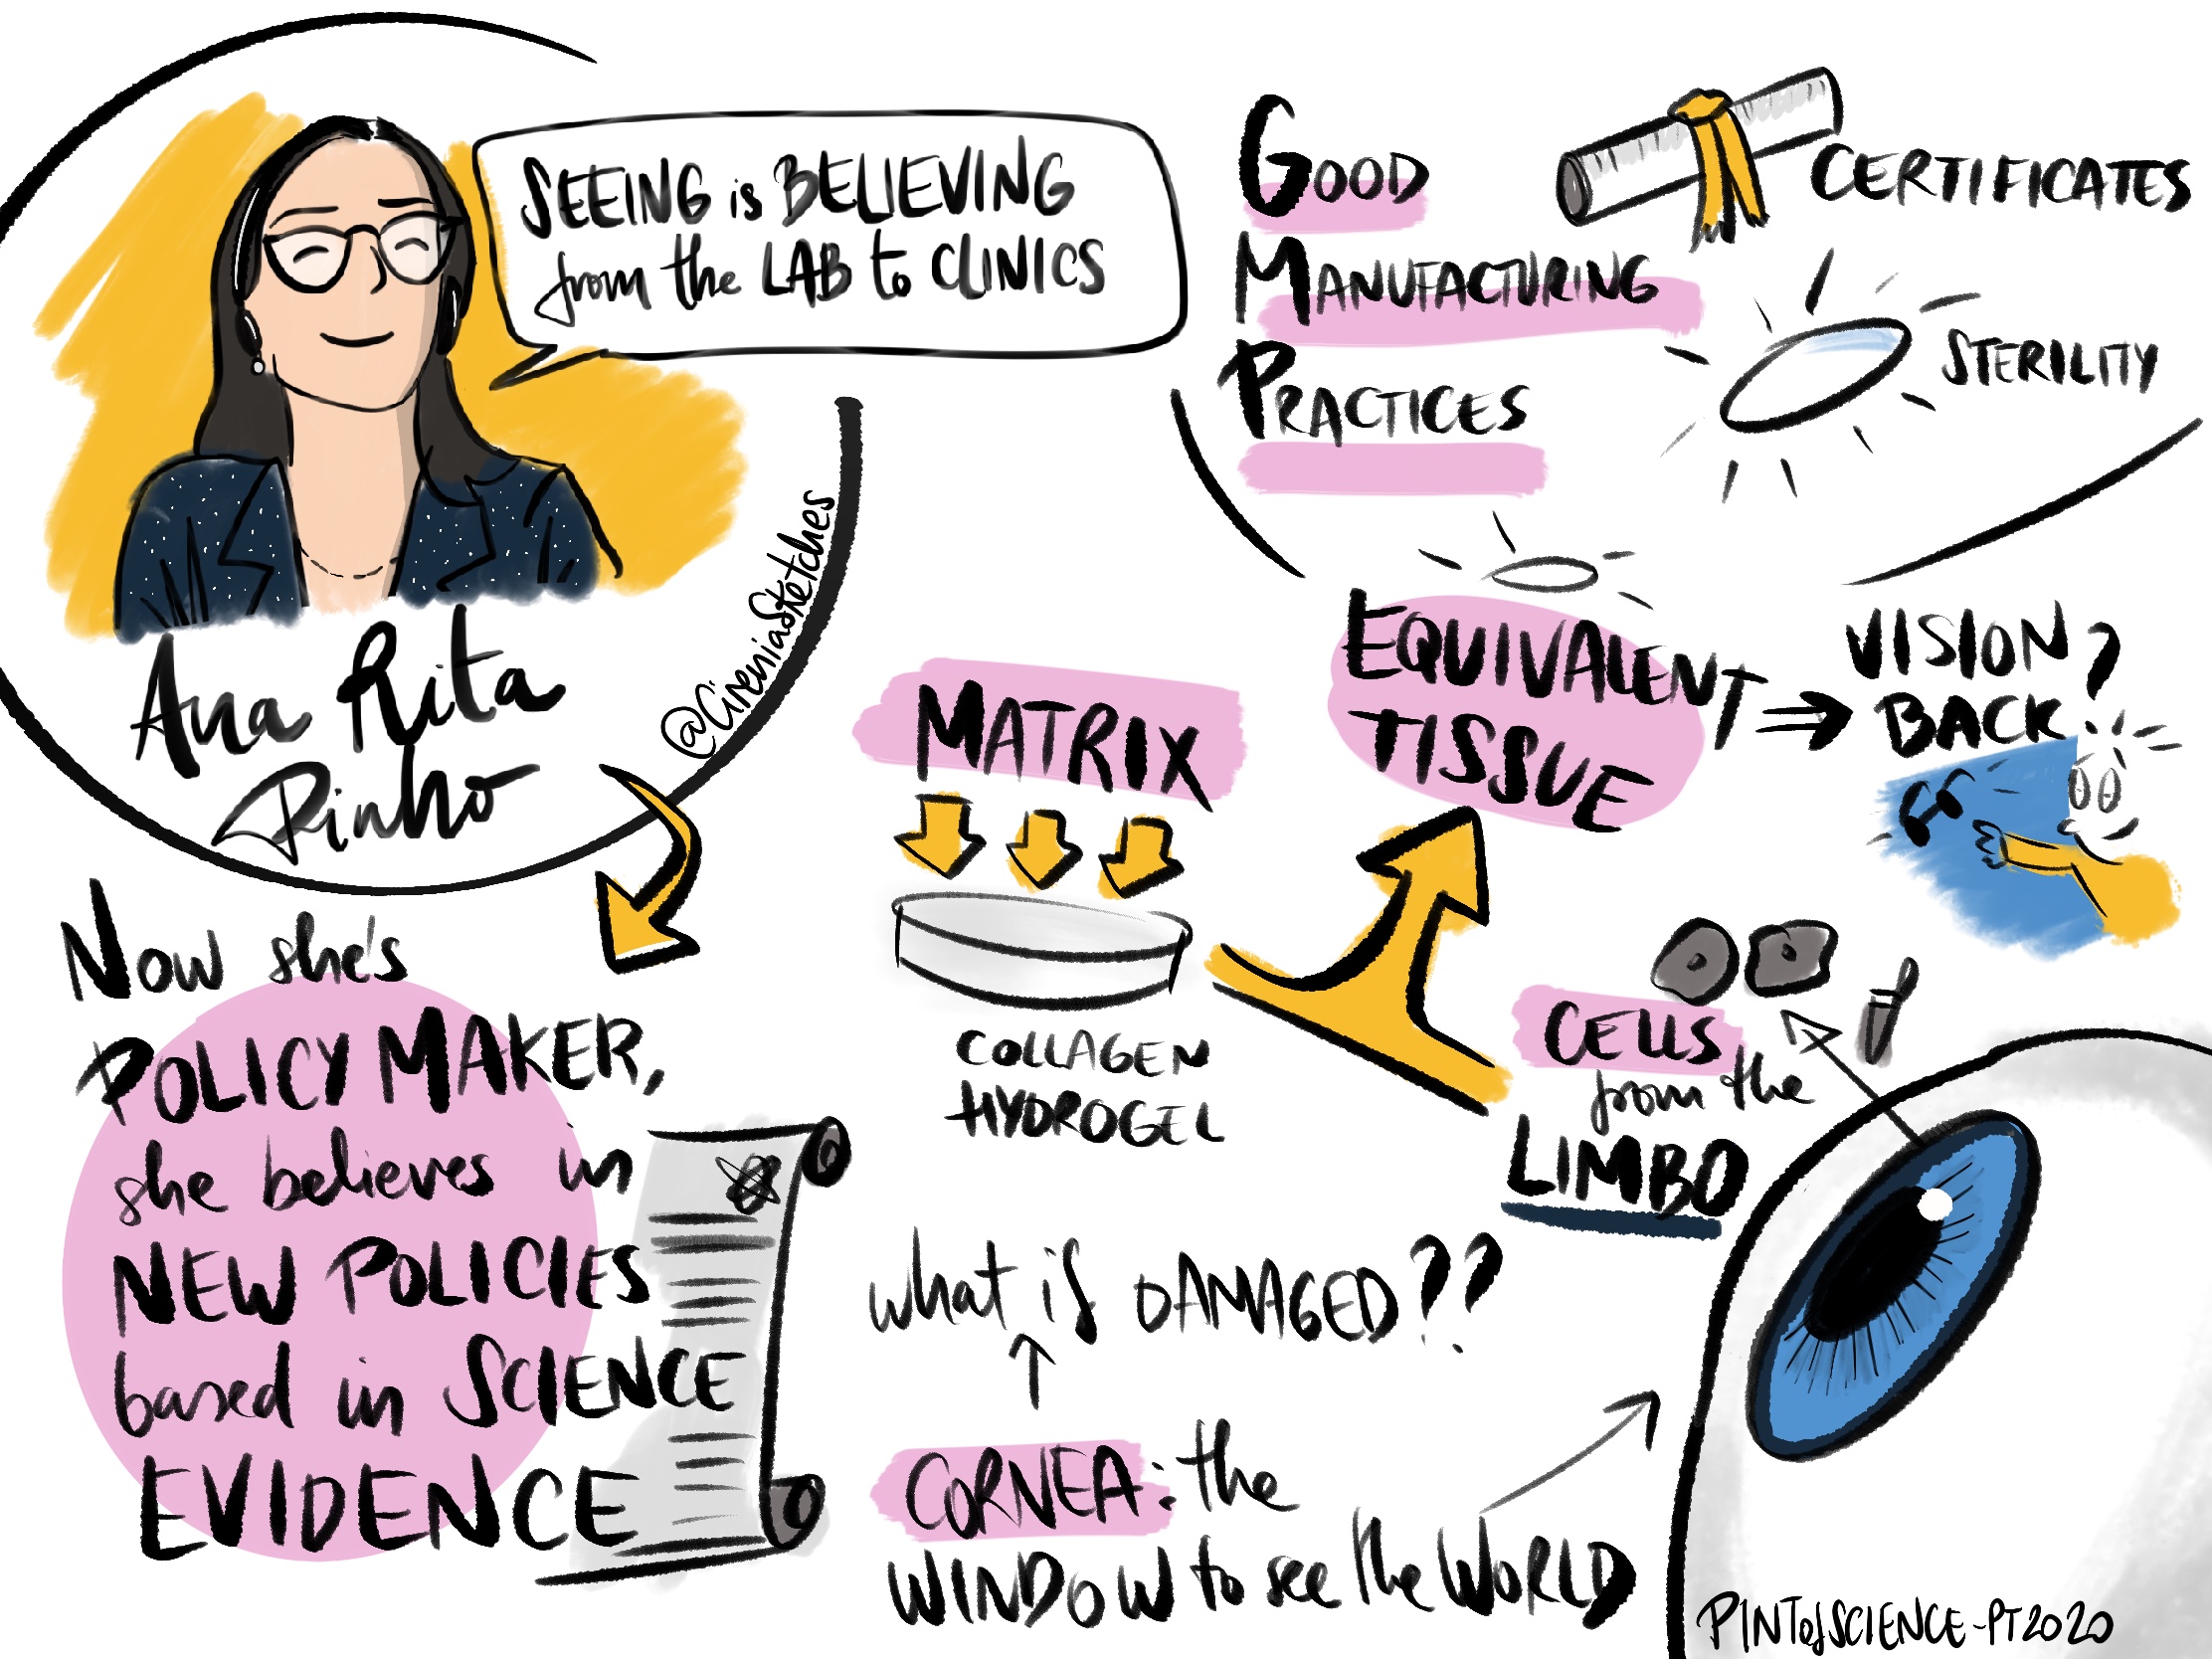 SEEING is BELIEVING
from the LAB to CLINICS
Ana Rita
Pinho
@CireniaSketches
Now she's
POLICY MAKER,
she believes in
NEW POLICIES
based in SCIENCE
EVIDENCE
GOOD
MANUFACTURING
PRACTICES
CERTIFICATES
STERILITY
MATRIX
COLLAGEN
HYDROGEL
EQUIVALENT
TISSUE
VISION
BACK?
CELLS
from the
LIMBO
what if DAMAGED??
CORNEA: the
WINDOW to see the WORLD
PINTofSCIENCE-PT2020